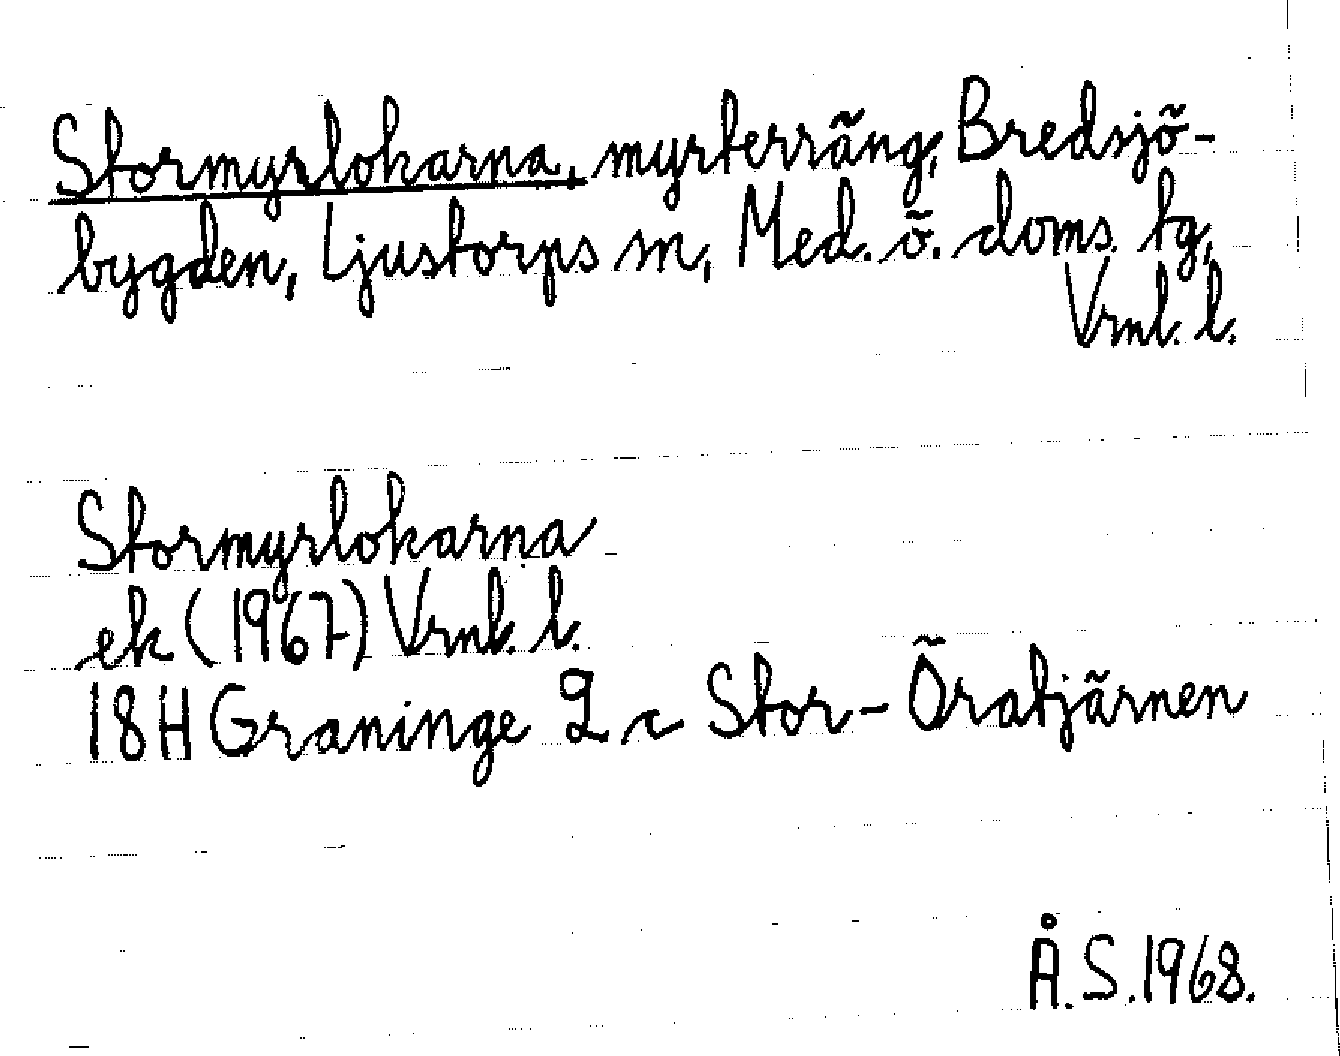 Stormyrlokarna, myrterräng, Bredsjö-
bygden, Ljustorps sn, Med. ö. doms. tg,
Vrnl. l.
Stormyrlokarna
ek (1967) Vrnl. l.
18H Graninge 2 c Stor-Öratjärnen
Å.S.1968.